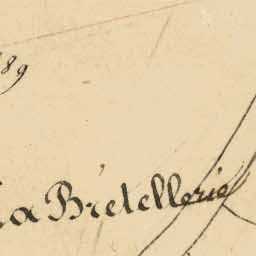 89
la Bretellerie